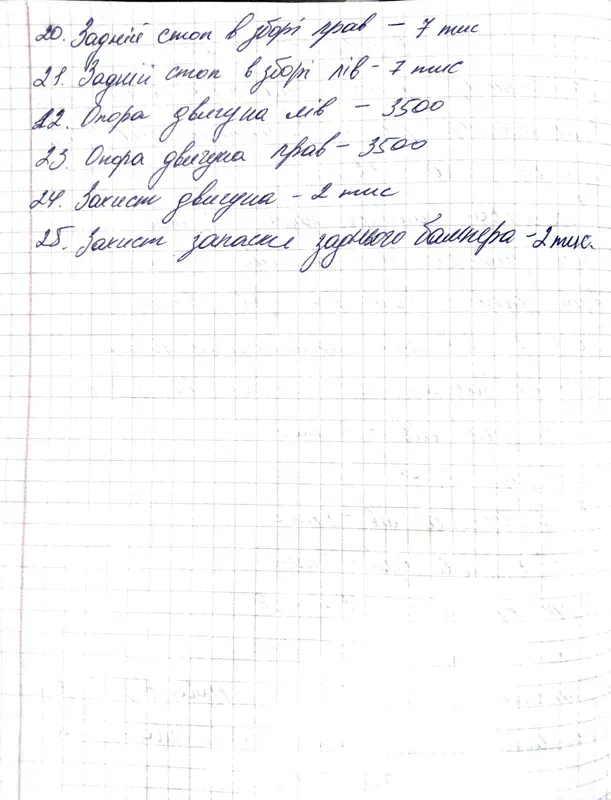 20. Задній стоп в зборі прав – 7 тис
21. Задній стоп в зборі лів - 7 тис
22. Опора двигуна лів – 3500
23. Опора двигуна прав – 3500
24. Захист двигуна - 2 тис
25. Захист запаски заднього бампера - 2 тис.